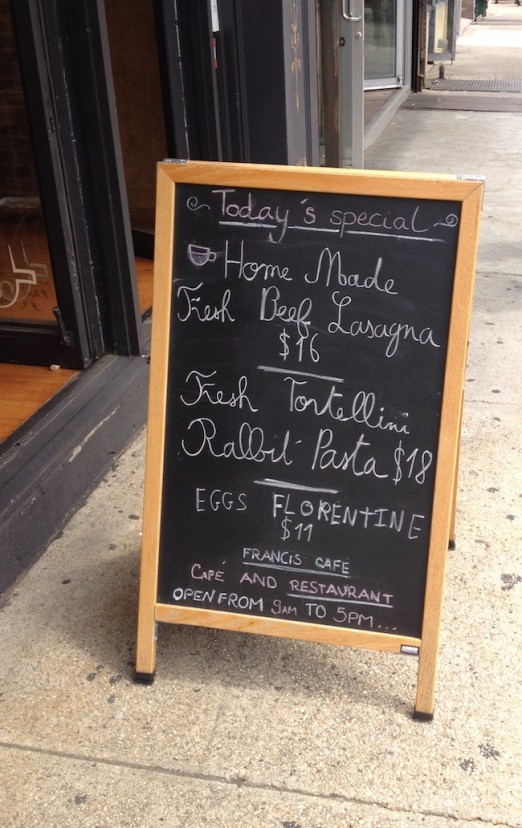 Today's special
Home Made
Fresh Beef Lasagna
$16
Fresh Tortellini
Rabbit Pasta $18
EGGS FLORENTINE
$11
FRANCIS CAFE
CAFÉ AND RESTAURANT
OPEN FROM 9AM TO 5PM...